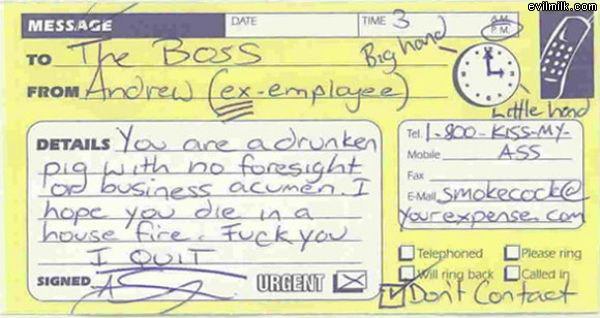 evilmilk.com
MESSAGE DATE TIME 3 A.M. P.M.
TO The Boss
Big hand
FROM Andrew (ex-employee)
Little hand
DETAILS You are a drunken
pig with no foresight
or business acumen. I
hope you die in a
house fire. Fuck you
I QUIT
SIGNED URGENT
Tel. 1-800-KISS-MY-
Mobile ASS
Fax
E-Mail smokecock@
yourexpense.com
Telephoned Please ring
Will ring back Called in
Don't Contact